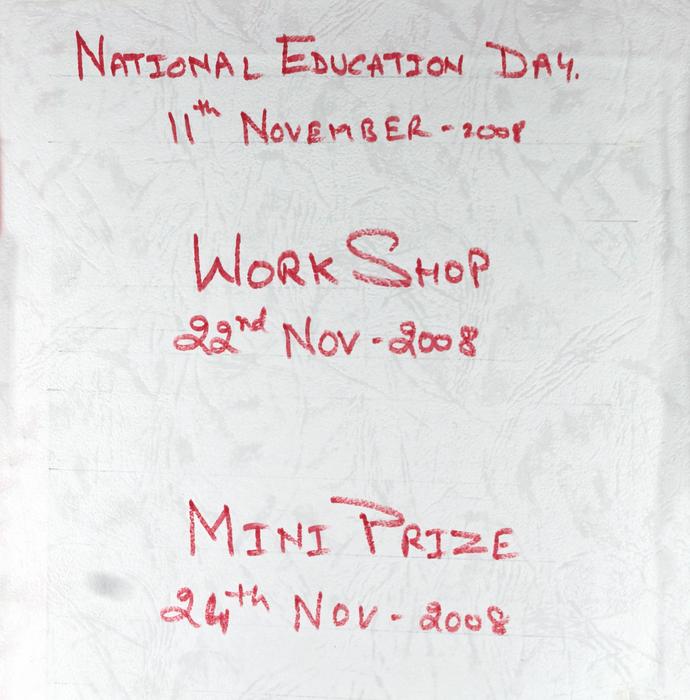 NATIONAL EDUCATION DAY.
11th NOVEMBER - 2008
WORK SHOP
22nd NOV - 2008
MINI PRIZE
24th NOV - 2008